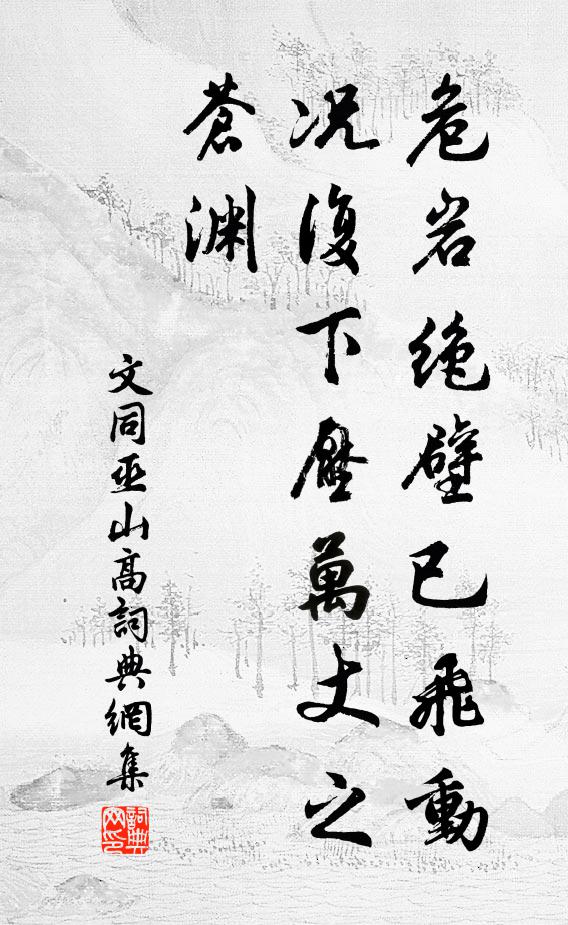 危岩绝壁已飛動
况復下壓萬丈之
蒼渊
文同巫山高詞典網集
詞典
网印